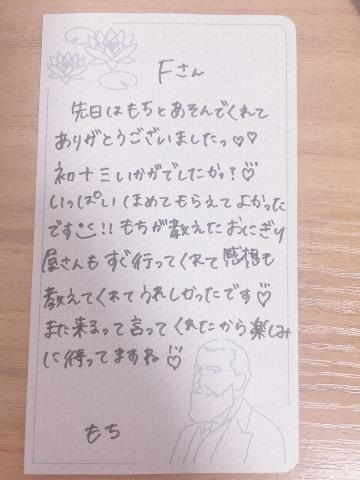 Fさん
先日はもちとあそんでくれて
ありがとうございましたっ♡♡
初十三いかがでしたかっ?♡
いっぱいほめてもらえてよかった
です!! もちが教えたおにぎり
屋さんもすぐ行ってくれて感想も
教えてくれてうれしかったです♡
また来るって言ってくれたから楽しみ
に待ってますね♡
もち